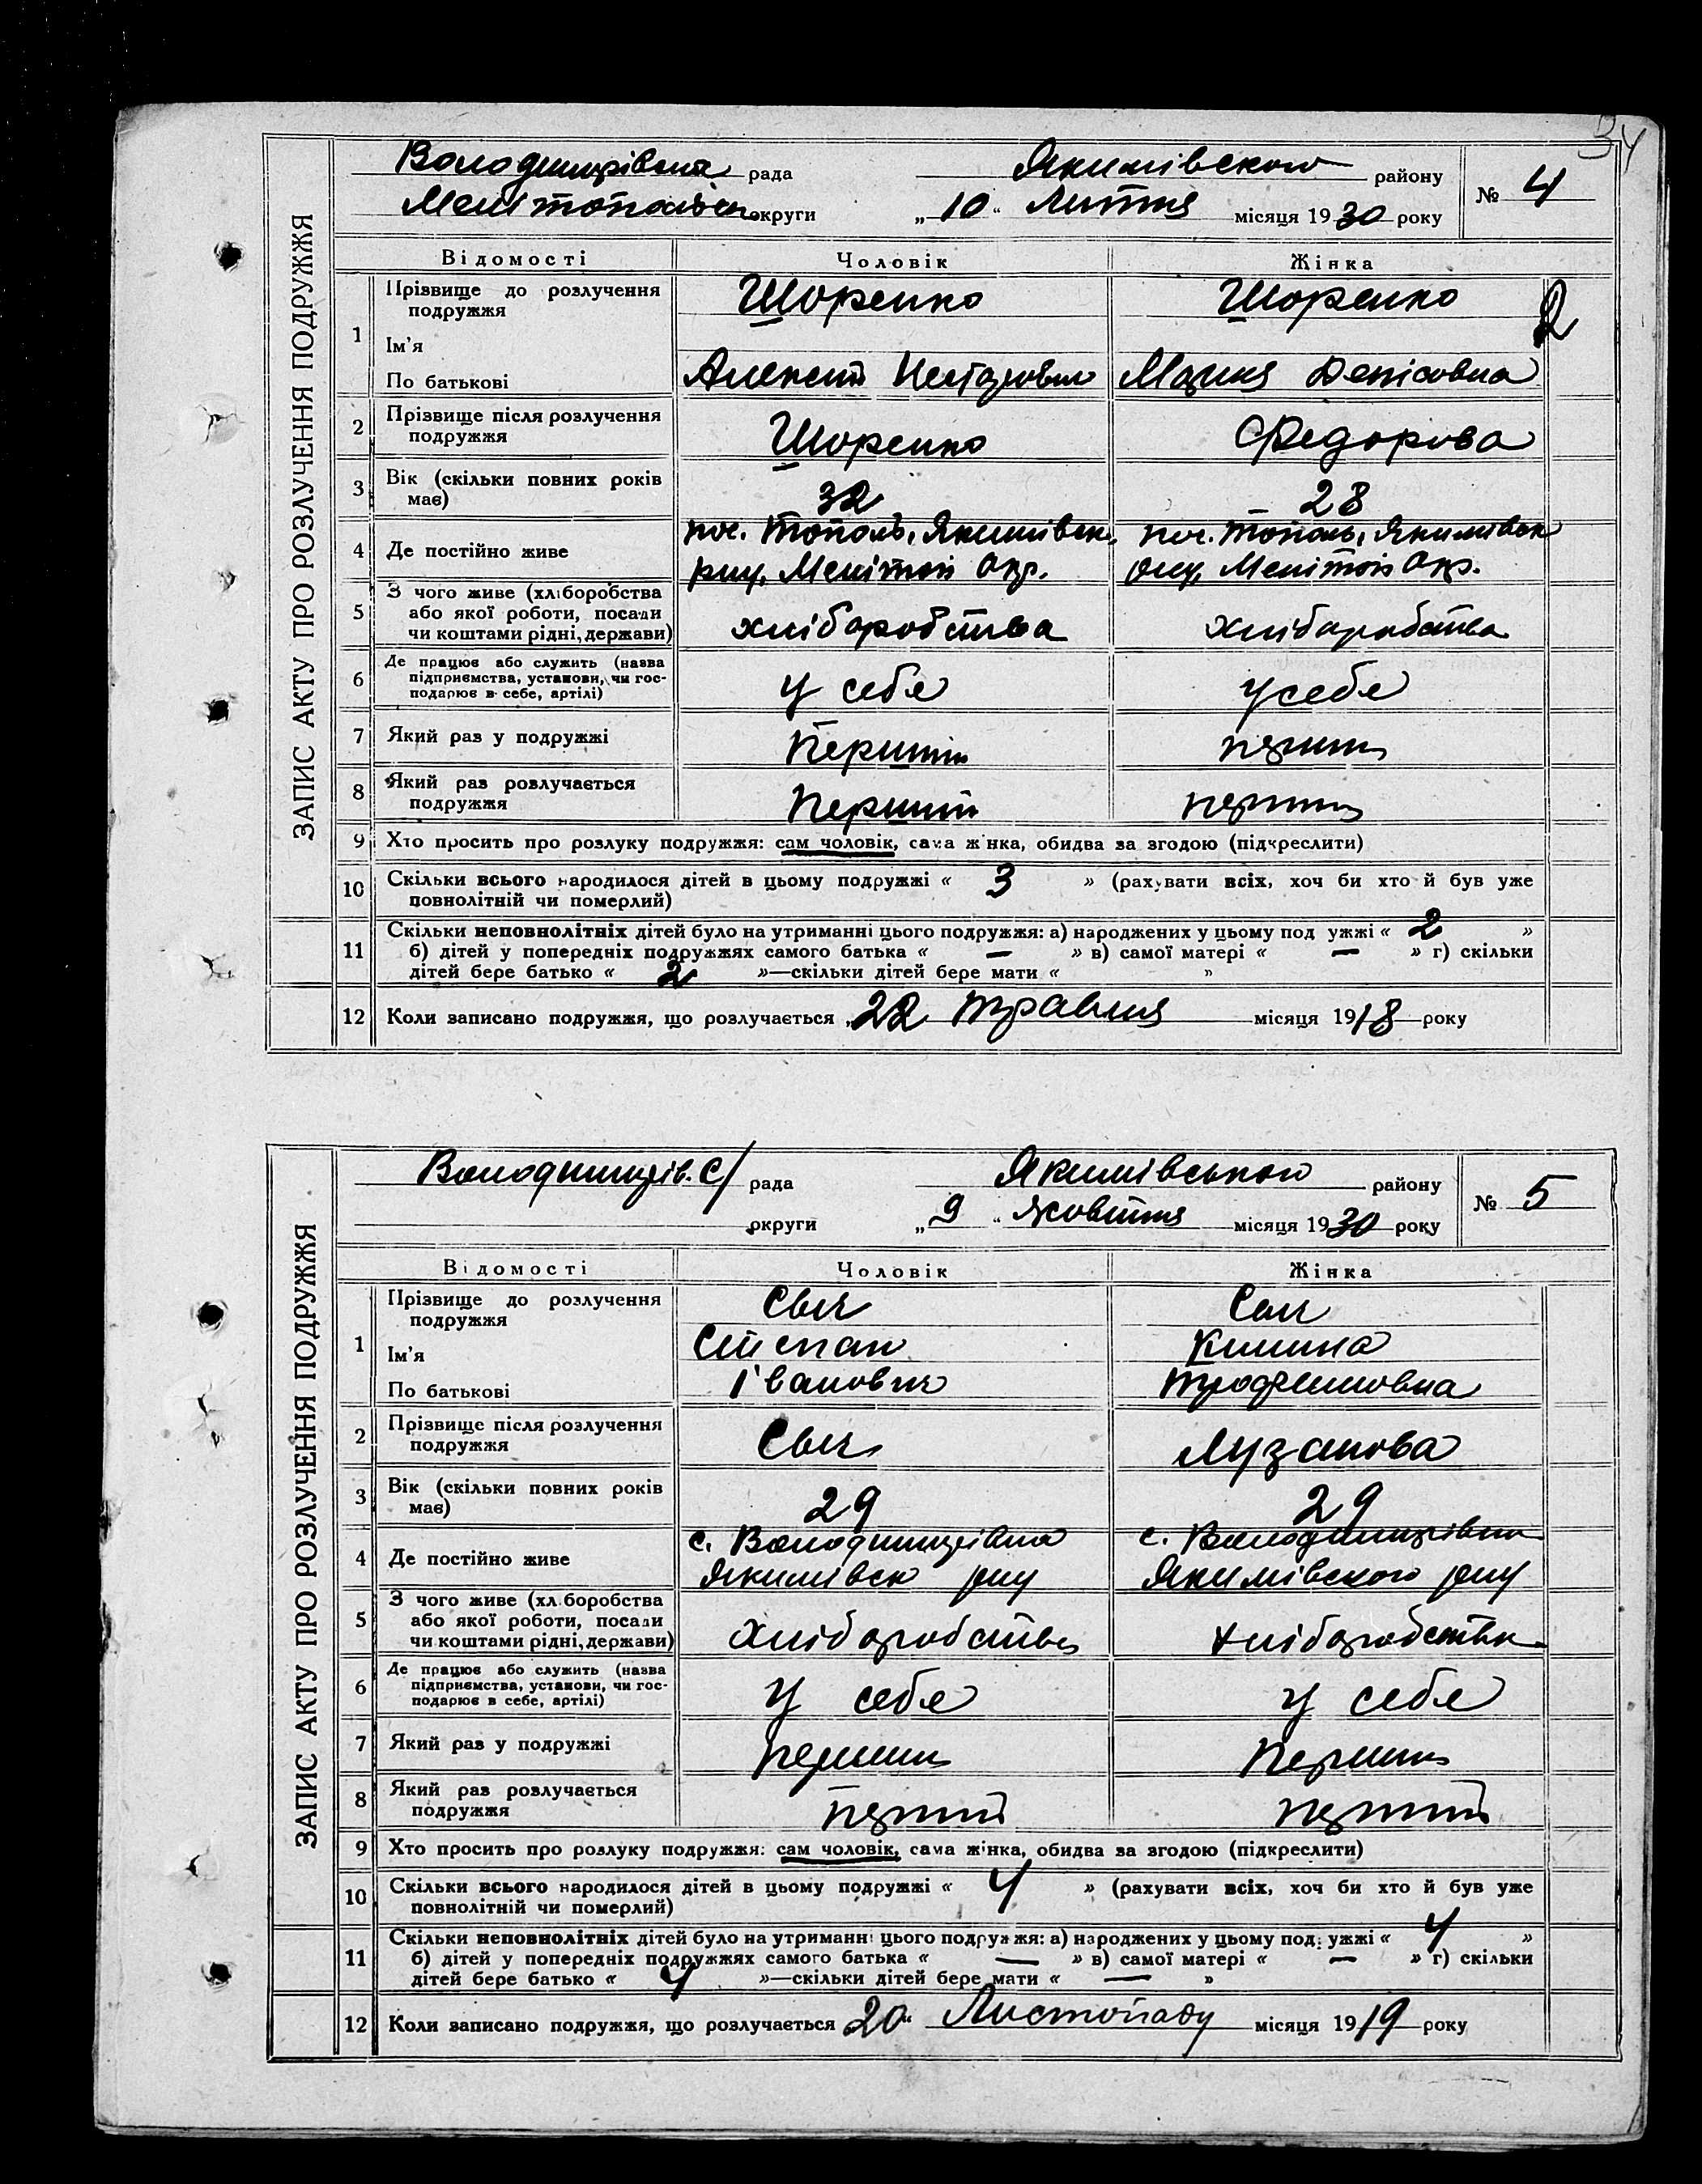 34
ЗАПИС АКТУ ПРО РОЗЛУЧЕННЯ ПОДРУЖЖЯ
Володимирівська рада Якимівского району № 4
Мелітопольск округи „10“ Лютня місяця 1930 року
Відомості Чоловік Жінка
1 Прізвище до розлучення подружжя Шоренко Шоренко 2
Ім'я
По батькові Алексій Нестерович Мария Денісовна
2 Прізвище після розлучення подружжя Шоренко Федорова
3 Вік (скільки повних років має) 32 28
4 Де постійно живе пос. Тополь, Якимівск. пос. Тополь, Якимівск
рну, Мелітоп Окр. рну, Мелітоп Окр.
5 З чого живе (хліборобства
або якої роботи, посади
чи коштами рідні, держави) хліборобства хліборобства
6 Де працює або служить (назва
підприємства, установи, чи гос-
подарює в себе, артілі) у себе у себе
7 Який раз у подружжі Перший перший
8 Який раз розлучається
подружжя Перший перший
9 Хто просить про розлуку подружжя: сам чоловік, сама жінка, обидва за згодою (підкреслити)
10 Скільки всього народилося дітей в цьому подружжі « 3 » (рахувати всіх, хоч би хто й був уже
повнолітній чи померлий)
11 Скільки неповнолітніх дітей було на утриманні цього подружжя: а) народжених у цьому подружжі « 2 »
б) дітей у попередніх подружжях самого батька « — » в) самої матері « — » г) скільки
дітей бере батько « 2 »—скільки дітей бере мати « »
12 Коли записано подружжя, що розлучається „22 травня місяця 1918 року
ЗАПИС АКТУ ПРО РОЗЛУЧЕННЯ ПОДРУЖЖЯ
Володимирів. С/ рада Якимівського району № 5
округи „9“ Жовтня місяця 1930 року
Відомості Чоловік Жінка
1 Прізвище до розлучення
подружжя Сыч Сыч
Ім'я Степан
По батькові Іванович Трофимовна
2 Прізвище після розлучення
подружжя Сыч Лузанова
3 Вік (скільки повних років
має) 29 29
4 Де постійно живе с. Володимирівка с. Володимирівка
Якимівск рну Якимівского рну
5 З чого живе (хліборобства
або якої роботи, посади
чи коштами рідні, держави) Хліборобства хліборобства
6 Де працює або служить (назва
підприємства, установи, чи гос-
подарює в себе, артілі) у себе у себе
7 Який раз у подружжі перший Перший
8 Який раз розлучається
подружжя перший перший
9 Хто просить про розлуку подружжя: сам чоловік, сама жінка, обидва за згодою (підкреслити)
10 Скільки всього народилося дітей в цьому подружжі « 4 » (рахувати всіх, хоч би хто й був уже
повнолітній чи померлий)
11 Скільки неповнолітніх дітей було на утриманні цього подружжя: а) народжених у цьому подружжі « 4 »
б) дітей у попередніх подружжях самого батька « — » в) самої матері « — » г) скільки
дітей бере батько « 4 »—скільки дітей бере мати « — »
12 Коли записано подружжя, що розлучається 20“ Листопаду місяця 1919 року